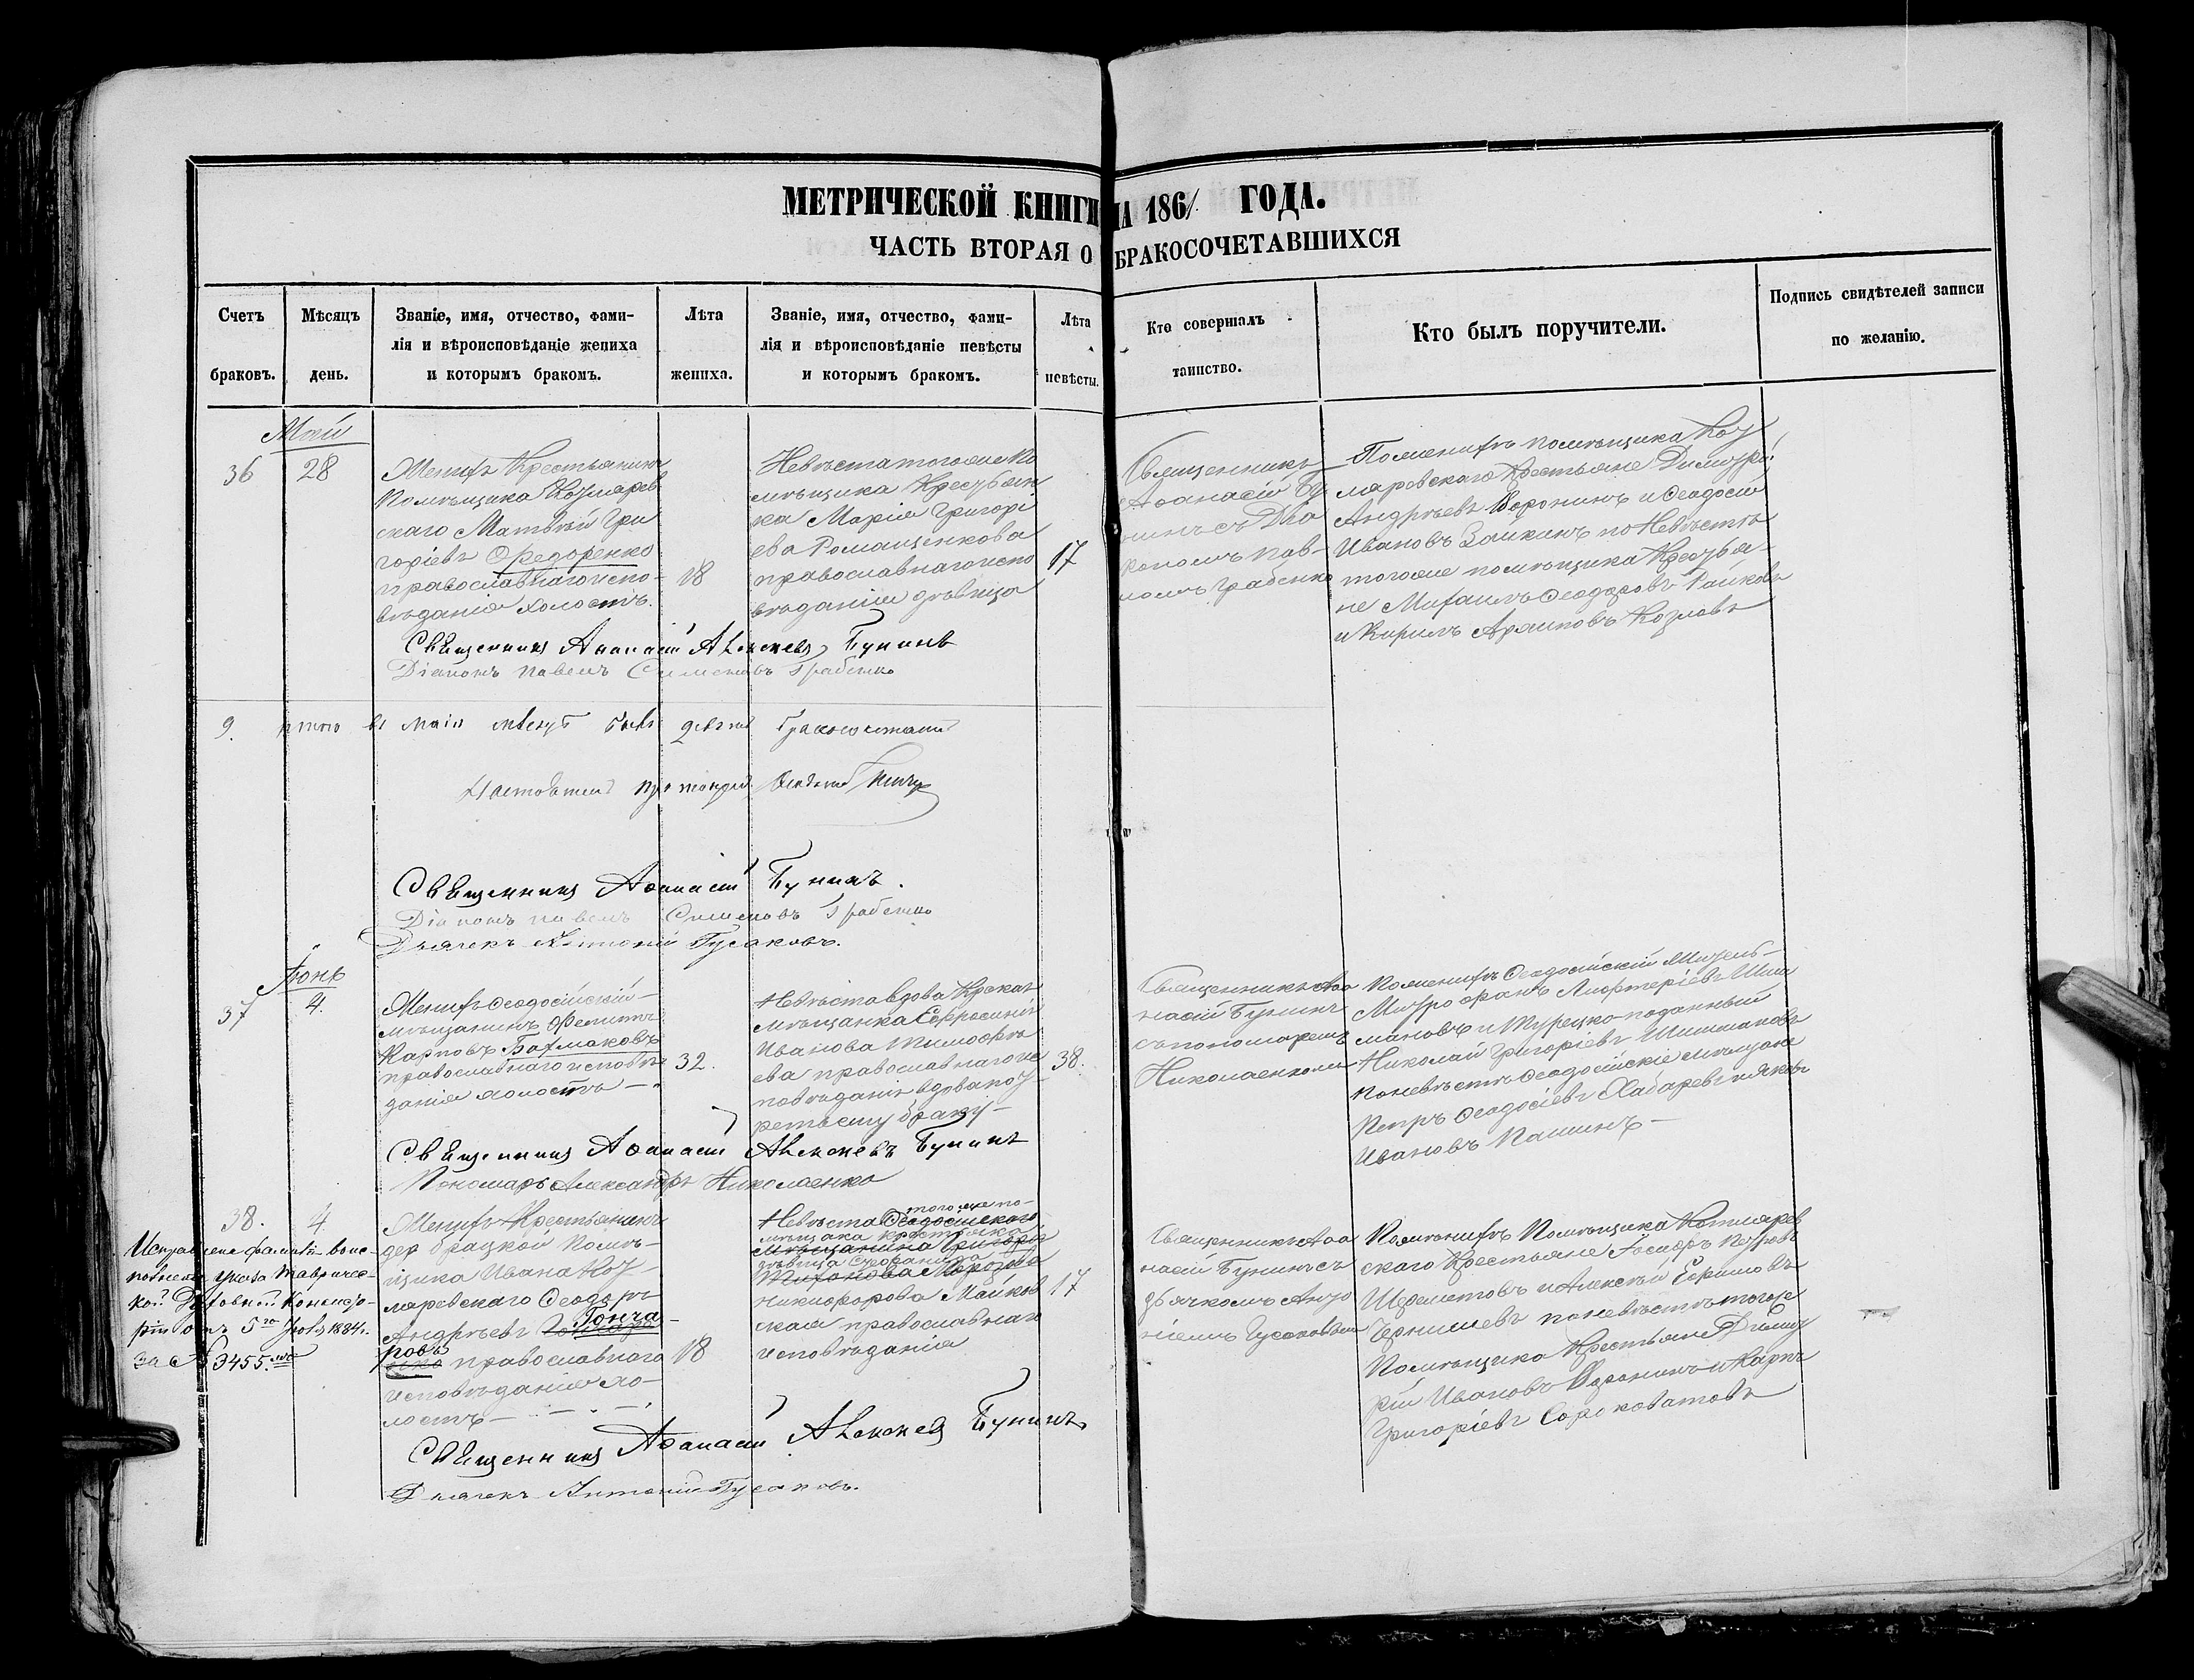 МЕТРИЧЕСКОЙ КНИГИ НА 1861 ГОДА.
ЧАСТЬ ВТОРАЯ О БРАКОСОЧЕТАВШИХСЯ
Счетъ
браковъ.
Мѣсяцъ
день.
Званіе, имя, отчество, фами-
лія и вѣроисповѣданіе жениха
и которымъ бракомъ.
Лѣта
жениха.
Званіе, имя, отчество, фами-
лія и вѣроисповѣданіе невѣсты
и которымъ бракомъ.
Лѣта
невѣсты.
Кто совершалъ
таинство.
Кто былъ поручители.
Подпись свидѣтелей записи
по желанію.
Май
36
28
Женихъ Крестьянинъ
Помѣщика Козлярев
скаго Матвѣй Гри
горіевъ Федоренко
православнаго испо-
вѣданія холостъ.
18
Невѣста тогоже По
мѣщика Крестьян
ка Марія Григорі
ева Ромащенкова
православнаго испо
вѣданія дѣвица
17
Священникъ
Аѳанасій Бу
нинъ съ Діа
кономъ Пав-
ломъ Грабенко
По женихѣ помѣщика Коз
ляровскаго Крестьяне Димитрій
Андрѣевъ Воронинъ и Ѳеодосій
Ивановъ Заикинъ по Невѣстѣ
тогоже помѣщика Крестья-
не Михаилъ Ѳеодоровъ Райковъ
и Кирилъ Архиповъ Козловъ
Священникъ Аѳанасій Алексѣевъ Бунинъ
Діаконъ Павелъ Симеоновъ Грабенко
9. итого въ маіи мѣсяцѣ бракосочетаній
Настоятель протоіерей
Священникъ Аѳанасій Бунинъ.
Діаконъ Павелъ Симеоновъ Грабенко
Дьячекъ Антоній Гусаковъ.
Іюнь
37
4.
Женихъ Ѳеодосійскій
мѣщанинъ Филиппъ
Карповъ Бахмаковъ
православнаго исповѣ
данія холостъ
32.
Невѣста вдова
мѣщанка Евфросинія
Иванова Тимоѳѣ
ева православнаго ис
повѣданія вдова по т
ретьему браку
38.
Священникъ Аѳа
насій Бунинъ
съ пономаремъ
Николаенкомъ
По женихѣ Ѳеодосійскій
Митрофанъ Люфтеріевъ Шиш
мановъ и Турецко-поданный
Николай Григоріевъ Шишмановъ
по невѣстѣ Ѳеодосійскіе мѣщане
Петръ Ѳеодосіевъ Хабаревъ и Яковъ
Ивановъ Пашинъ
Священникъ Аѳанасій Алексѣевъ Бунинъ
Пономарь Александръ Николаенко
38.
4
Исправлена фамилія
указа Тавричес-
кой Духовной Консисто-
ріи отъ 5го 1884г.
за № 3455.
Женихъ Крестьянинъ
дер Брацкой помѣ-
щика Ивана Коз
ляревскаго Ѳеодоръ
Андрѣевъ Гонча-
ровъ
православнаго
исповѣданія хо-
лостъ
18
того же по-
Невѣста Ѳеодосійскаго
мѣщика Крестьянка
мѣщанина Григорія
дѣвица
Тифанова Морозова
Никифорова Майков
ская православнаго
исповѣданія
17
Священникъ Аѳа
насій Бунинъ съ
дьячкомъ Анто
ніемъ Гусаковымъ
По женихѣ Помѣщика Котляров
скаго Крестьяне Іосифъ Петровъ
Шереметовъ и Алексѣй Ефимовъ
Чернишевъ по невѣстѣ тогоже
Помѣщика Крестьяне Димит
рій Ивановъ Воронинъ и Карпъ
Григоріевъ Сороковатовъ
Священникъ Аѳанасій Алексѣевъ Бунинъ
Дьячекъ Антоній Гусаковъ.